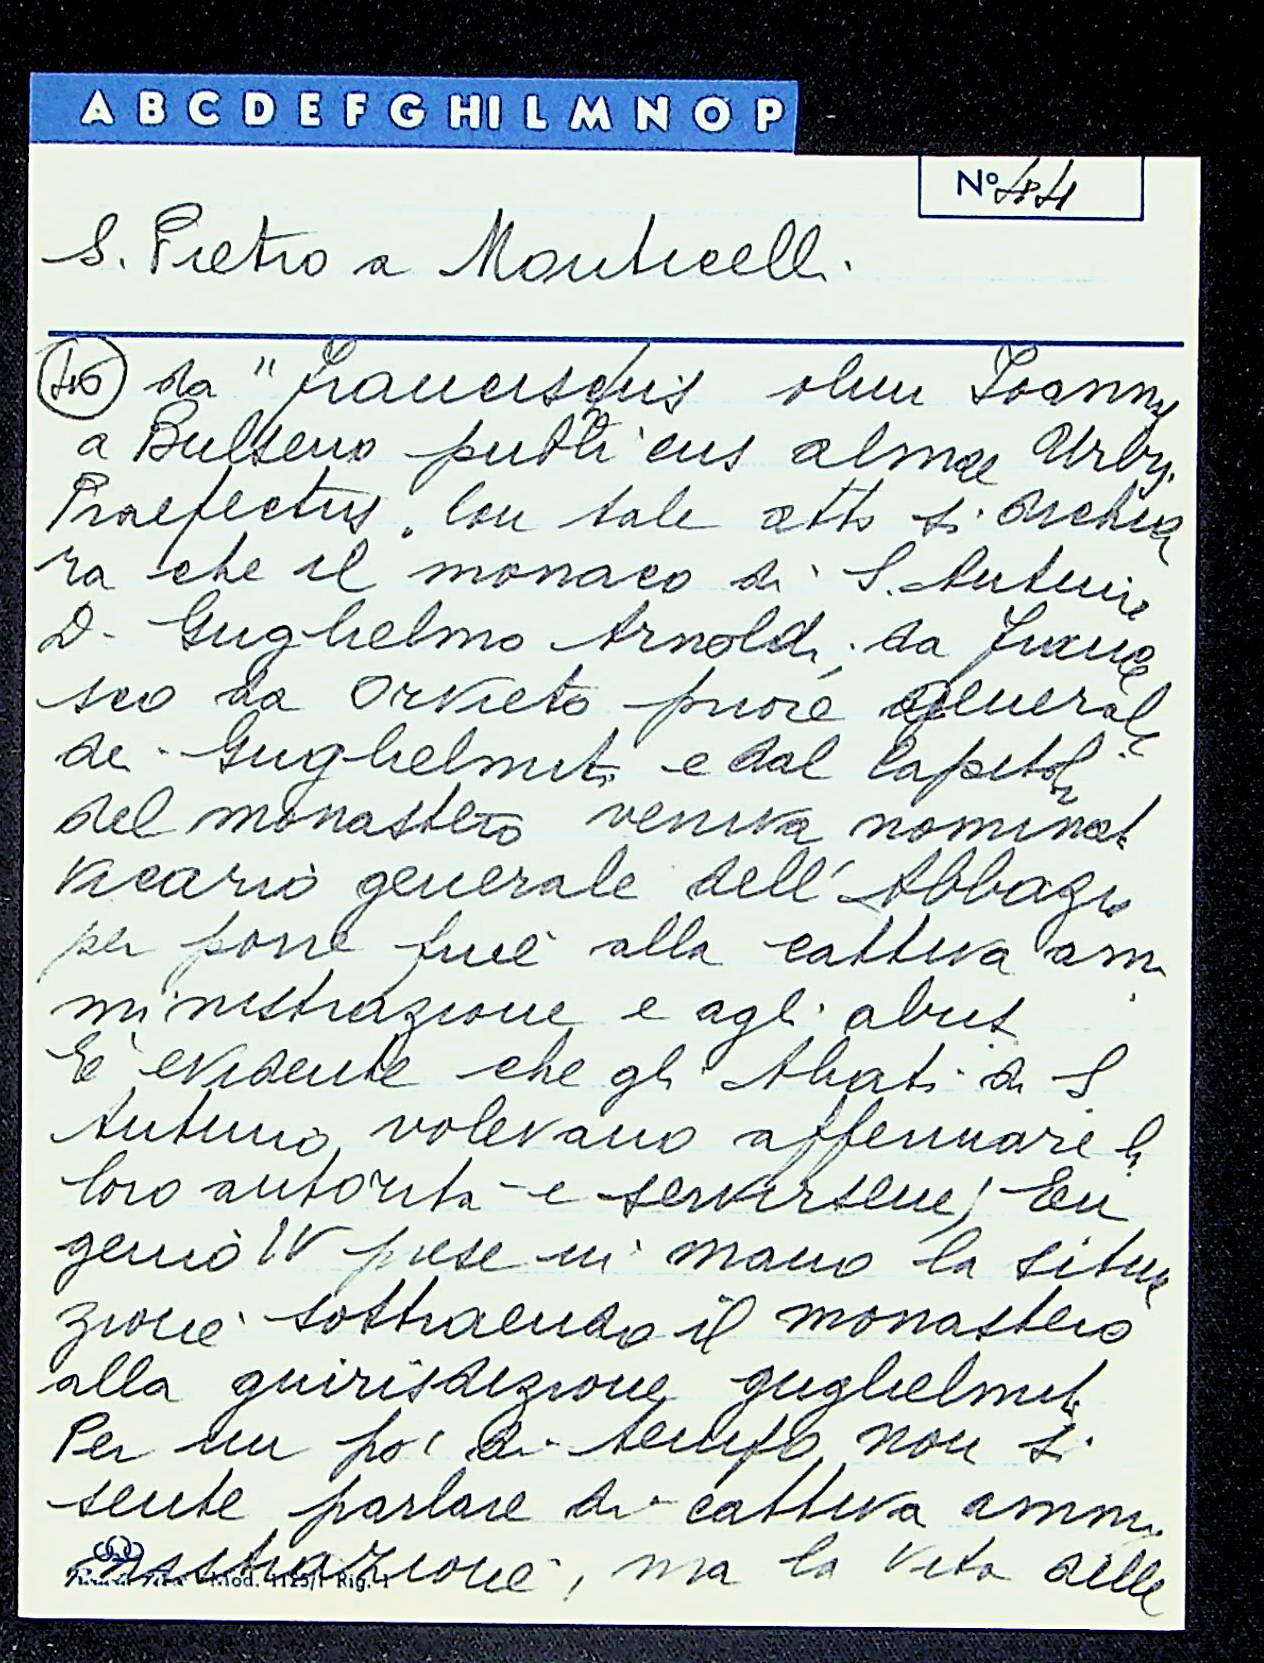 A B C D E F G HI L M N O P
N° 44
S. Pietro a Monticelli.
46 da "Francischus olim Joannis
a Bulseno publicus almae Urbis
Praefectus. Con tale atto si dichia
ra che il monaco di S. Antimo
D. Guglielmo Arnoldi, da France
sco da Orvieto priore generale
dei Guglielmiti e dal Capitolo
del monastero veniva nominato
Vicario generale dell'Abbazia
per porre fine alla cattiva am
ministrazione e agli abusi
E' evidente che gli Abati di S.
Antimo volevano affermare la
loro autorità e servirsene! Eu
genio IV prese in mano la situa
zione sottraendo il monastero
alla guirisdizione guglielmit.
Per un po' di tempo non si
sente parlare di cattiva ammi
nistrazione, ma la vita delle
Mod. 1125/1 Rig. 1